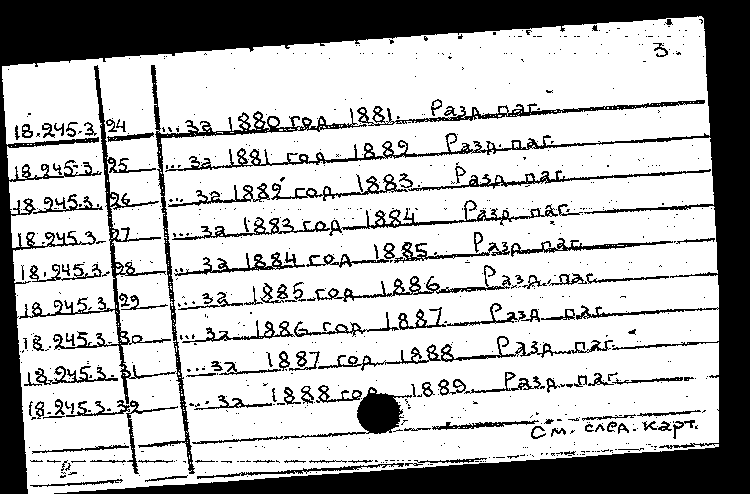 3.
18.245.3 24 ... за 1880 год 1881. Разд. паг.
18.245.3 25 ... за 1881 год. 1882 Разд. паг.
18.245.3. 26 ... за 1882 год. 1883. Разд. паг.
18.245.3 27 ... за 1883 год 1884 Разд. паг.
18.245.3. 28 ... за 1884 год. 1885. Разд. паг.
18.245.3. 29 ... за 1885 год 1886. Разд. паг.
18.245.3. 30 ... за 1886 год 1887. Разд. паг.
18.245.3. 31 ... за 1887 год 1888 Разд. паг.
18.245.3. 32 ... за 1888 год 1889. Разд. паг.
См. след. карт.